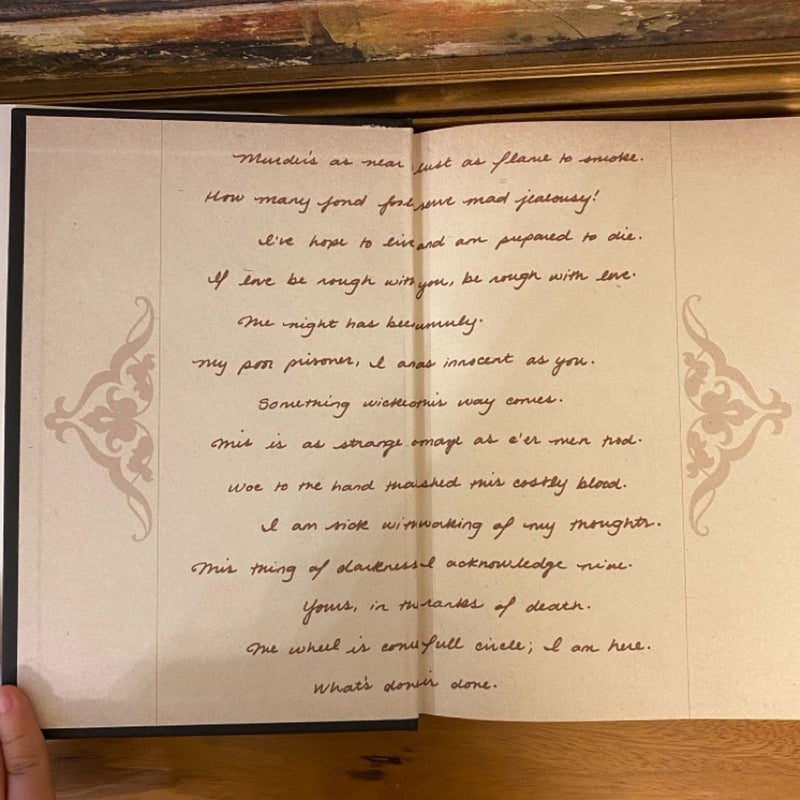 Murder's as near lust as flame to smoke.
How many fond fools serve mad jealousy!
I've hope to live and am prepared to die.
If love be rough with you, be rough with love.
The night has been unruly.
My poor prisoner, I am as innocent as you.
Something wicked this way comes.
This is as strange a maze as e'er men trod.
Woe to the hand that shed this costly blood.
I am sick with working of my thoughts.
This thing of darkness I acknowledge mine.
Yours, in the ranks of death.
The wheel is come full circle; I am here.
What's done is done.